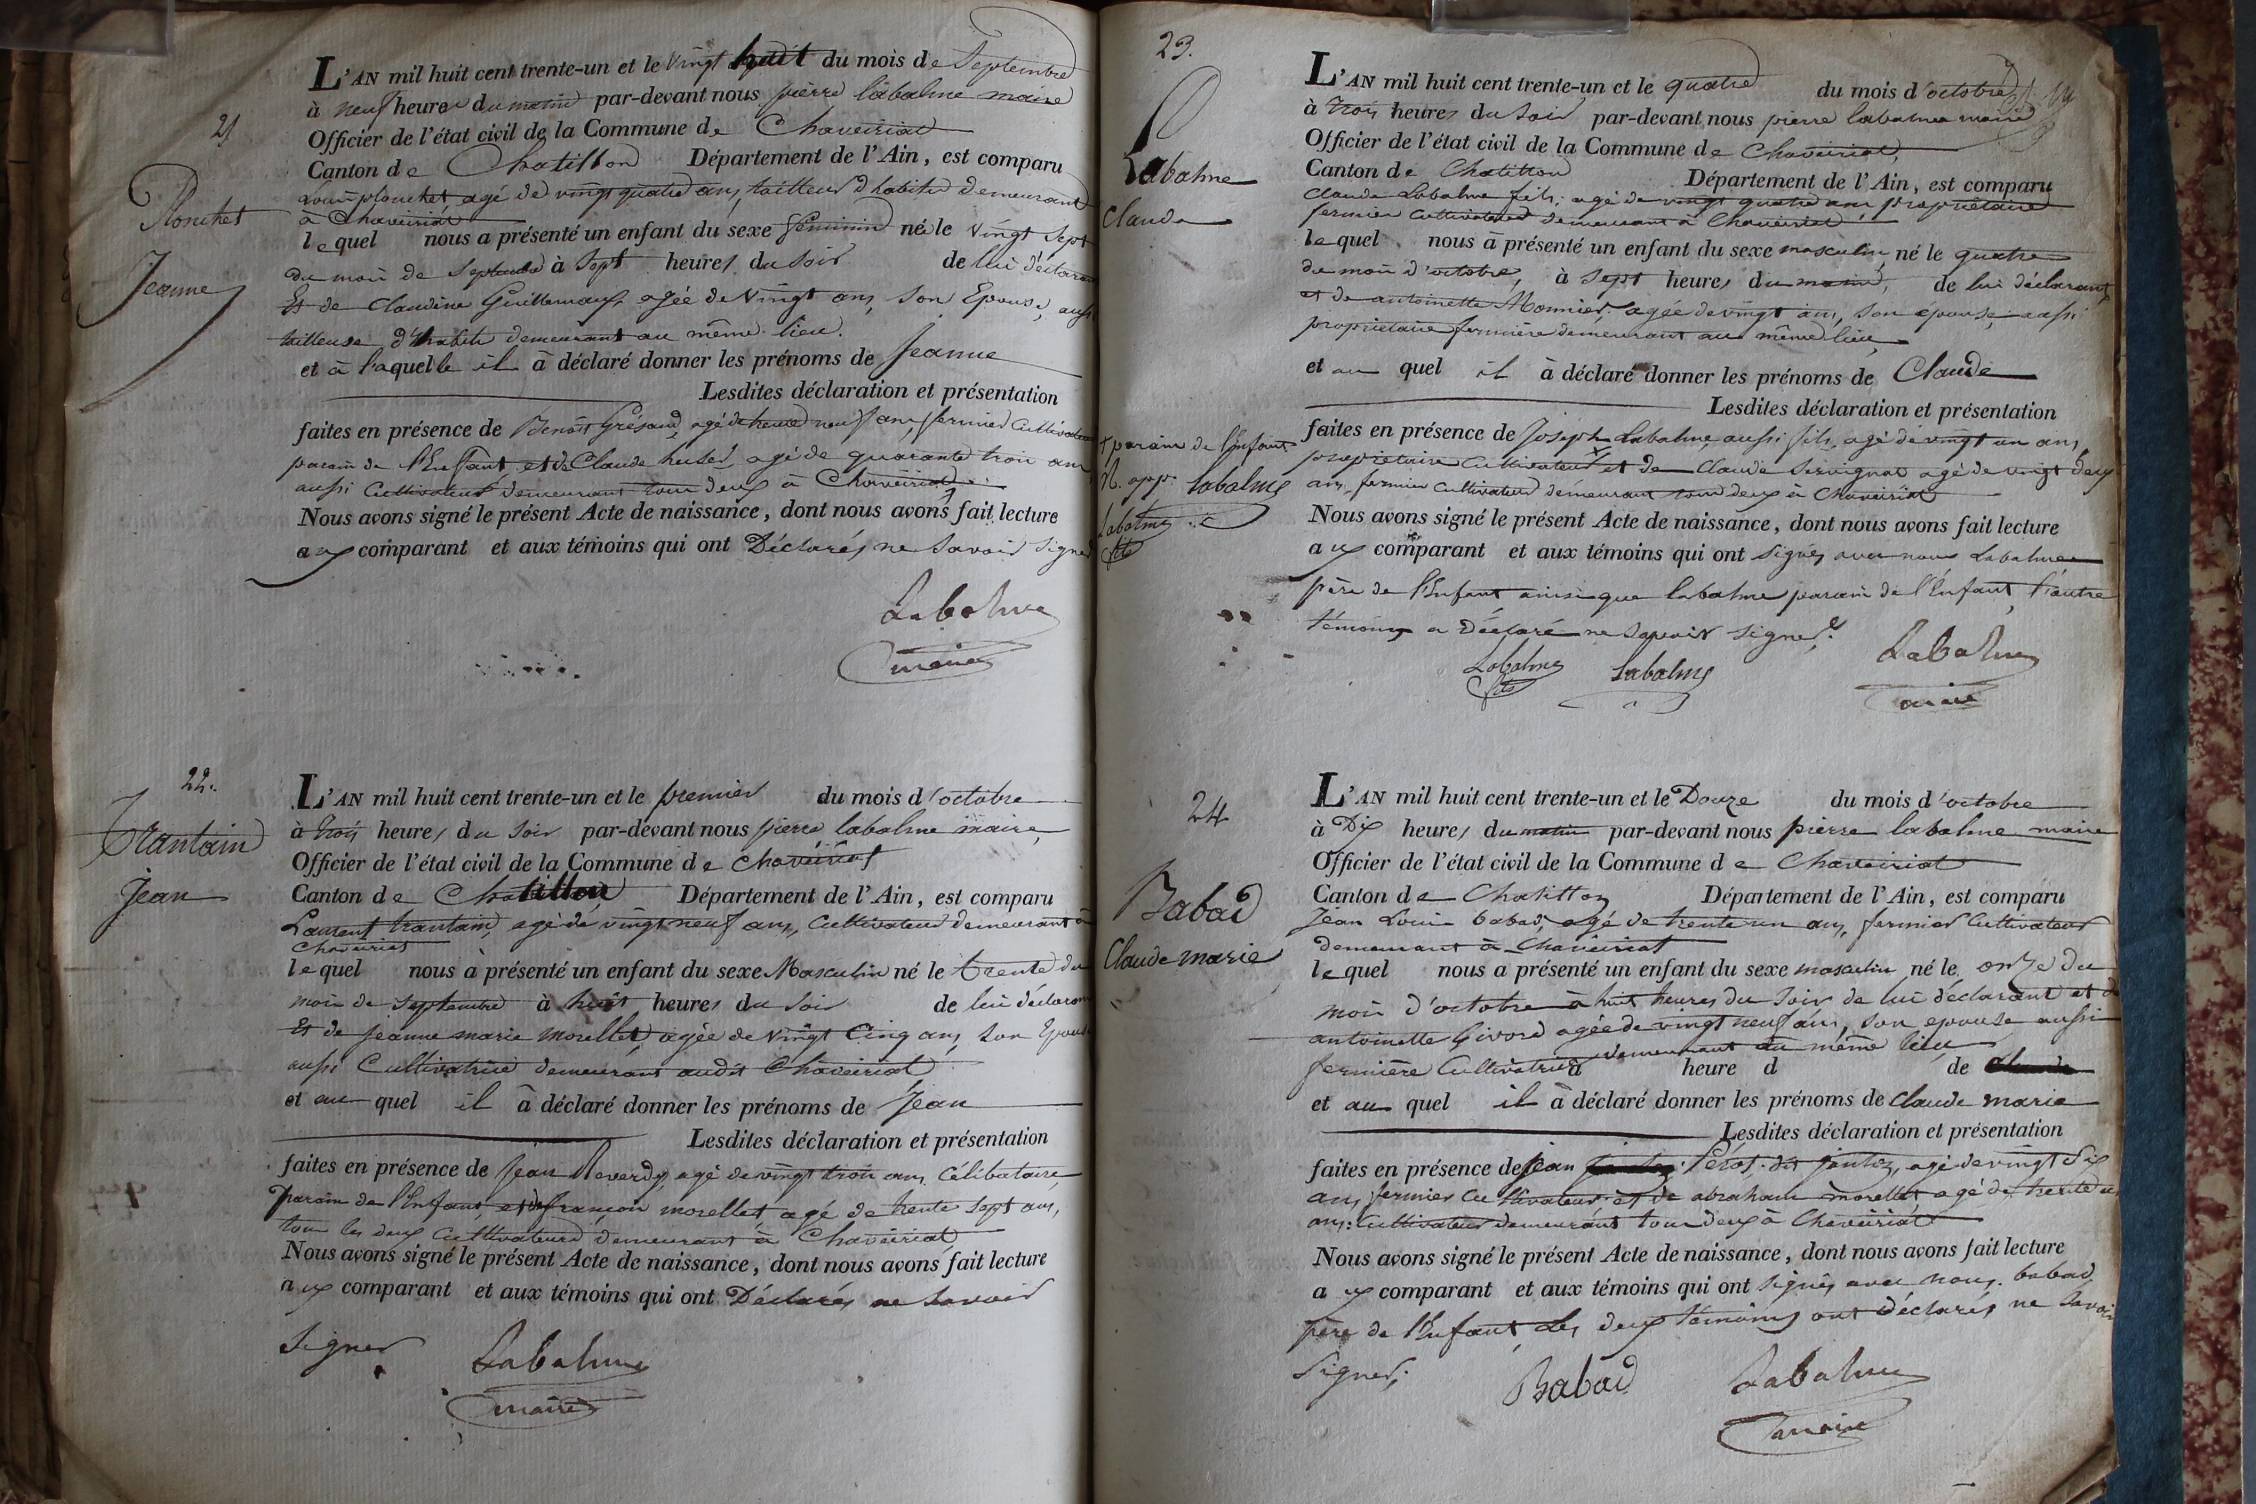 21
Plonchet
Jeanne
L'AN mil huit cent trente-un et le vingt huit du mois de Septembre
à neuf heures du matin par-devant nous pierre labalme maire
Officier de l'état civil de la Commune de Chaveiriat
Canton de Chatillon Département de l'Ain, est comparu
Louis plonchet, agé de vingt quatre ans, tailleur d'habits demeurant
à Chaveiriat
lequel nous a présenté un enfant du sexe féminin née le vingt sept
du mois de Septembre à Sept heures du soir de lui déclarant
Et de Claudine agée de vingt ans, son Epouse, aussi
tailleuse d'habits demeurant au même lieu.
et à laquelle il à déclaré donner les prénoms de Jeanne
Lesdites déclaration et présentation
faites en présence de Benoit agé de trente neuf ans, fermier Cultivateur
parain de l'Enfant et de Claude agé de quarante trois ans
aussi Cultivateur demeurant tous deux à Chaveiriat
Nous avons signé le présent Acte de naissance, dont nous avons fait lecture
aux comparant et aux témoins qui ont Déclarés ne Savoir Signer
Labalme
maire
22.
Trantain
Jean
L'AN mil huit cent trente-un et le premier du mois d'octobre
à trois heures du soir par-devant nous pierre labalme maire,
Officier de l'état civil de la Commune de chaveiriat
Canton de Chatillon Département de l'Ain, est comparu
Laurent trantain, agé de vingt neuf ans, Cultivateur demeurant à
Chaveiriat
lequel nous à présenté un enfant du sexe Masculin né le trente du
mois de septembre à huit heures du soir de lui déclarant
Et de Jeanne marie morellet, agée de vingt Cinq ans, son Epouse
aussi Cultivatrice demeurant audit Chaveiriat
et au quel il à déclaré donner les prénoms de Jean
Lesdites déclaration et présentation
faites en présence de Jean Reverdy, agé de vingt trois ans, Célibataire,
Parain de l'Enfant et de françois morellet, agé de trente Sept ans,
tous les deux Cultivateurs demeurant à Chaveiriat
Nous avons signé le présent Acte de naissance, dont nous avons fait lecture
aux comparant et aux témoins qui ont Déclarés ne Savoir
Signer
Labalme
maire
23.
Labalme
Claude
L'AN mil huit cent trente-un et le quatre du mois d'octobre
à trois heures du soir par-devant nous pierre labalme maire
Officier de l'état civil de la Commune de Chaveiriat,
Canton de Chatillon Département de l'Ain, est comparu
Claude Labalme fils, agé de vingt quatre ans, propriétaire
fermier Cultivateur demeurant à Chaveiriat
lequel nous à présenté un enfant du sexe masculin, né le quatre
du mois d'octobre, à sept heures du matin, de lui déclarant
et de antoinette Monnier agée de vingt ans, son épouse, aussi
propriétaire fermière demeurant au même lieu,
et au quel il à déclaré donner les prénoms de Claude
Lesdites déclaration et présentation
faites en présence de Joseph Labalme, aussi fils, agé de vingt un ans,
propriétaire Cultivateur + et de Claude Servignat agé de vingt deux
ans, fermier Cultivateur demeurant tous deux à Chaveiriat
+ parain de l'Enfant
N. app. labalme
Labalme
fils
Nous avons signé le présent Acte de naissance, dont nous avons fait lecture
aux comparant et aux témoins qui ont signés avec nous Labalme
père de l'Enfant ainsi que labalme parain de l'Enfant, l'autre
témoins a Déclaré ne Savoir signer.
Labalme
fils
Labalme
Labalme
maire
24
Babad
Claude marie
L'AN mil huit cent trente-un et le Douze du mois d'octobre
à Dix heures du matin par-devant nous pierre labalme maire
Officier de l'état civil de la Commune de Chaveiriat
Canton de Chatillon Département de l'Ain, est comparu
Jean Louis babad, agé de trente un ans, fermier Cultivateur
demeurant à Chaveiriat
lequel nous a présenté un enfant du sexe masculin, né le onze du
mois d'octobre à huit heures du soir de lui déclarant et de
antoinette Givord agée de vingt neuf ans, son epouse aussi
fermière Cultivatrice demeurant au même lieu
à heure d de
et au quel il à déclaré donner les prénoms de Claude marie
Lesdites déclaration et présentation
faites en présence de Jean Pérat dit agé de vingt Six
ans, fermier Cultivateur et de abraham morellet agé de trente
ans Cultivateur demeurant tous deux à Chaveiriat
Nous avons signé le présent Acte de naissance, dont nous avons fait lecture
aux comparant et aux témoins qui ont signés avec nous. babad
père de l'Enfant, les deux témoins ont déclarés ne Savoir
Signer.
Babad
Labalme
maire